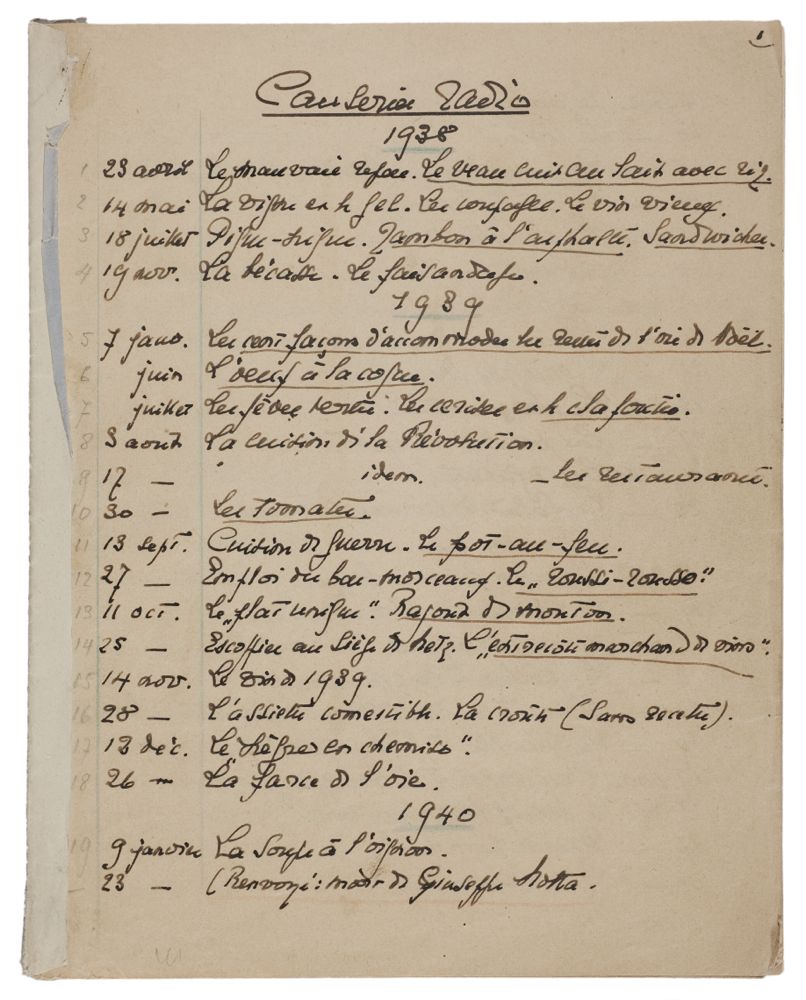 1
Causeries Radio
1938
1 23 avril Le mauvais repas. Le veau cuit au lait avec riz.
2 14 mai La vigne et le gel. Les Le vin vieux.
3 18 juillet Pique-nique. Jambon à l'asphalte. Sandwiches.
4 19 nov. La bécasse. Le faisandage.
1939
5 7 janv. Les cent façons d'accommoder les restes de l'oie de Noël.
6 juin L'oeuf à la coque.
7 juillet Les fèves vertes. Les cerises et le clafoutis.
8 3 août La cuisine de la Révolution.
9 17 — " idem. — Les restaurants.
10 30 — Les tomates.
11 13 sept. Cuisine de guerre. Le pot-au-feu.
12 27 — Emploi des bas-morceaux. Le „Roussi-Rousso."
13 11 oct. Le „plat unique". Ragoût de mouton.
14 25 — Escoffier au siège de Metz. L'„entrecôte marchand de vins".
15 14 nov. Le vin de 1939.
16 28 — L'assiette comestible. La croûte (Sans recette).
17 12 déc. Le „lièvre en chemise".
18 26 — La farce de l'oie.
1940
19 9 janvier La Soupe à l'oignon.
– 23 — (Renvoyé: mort de Giuseppe Motta.